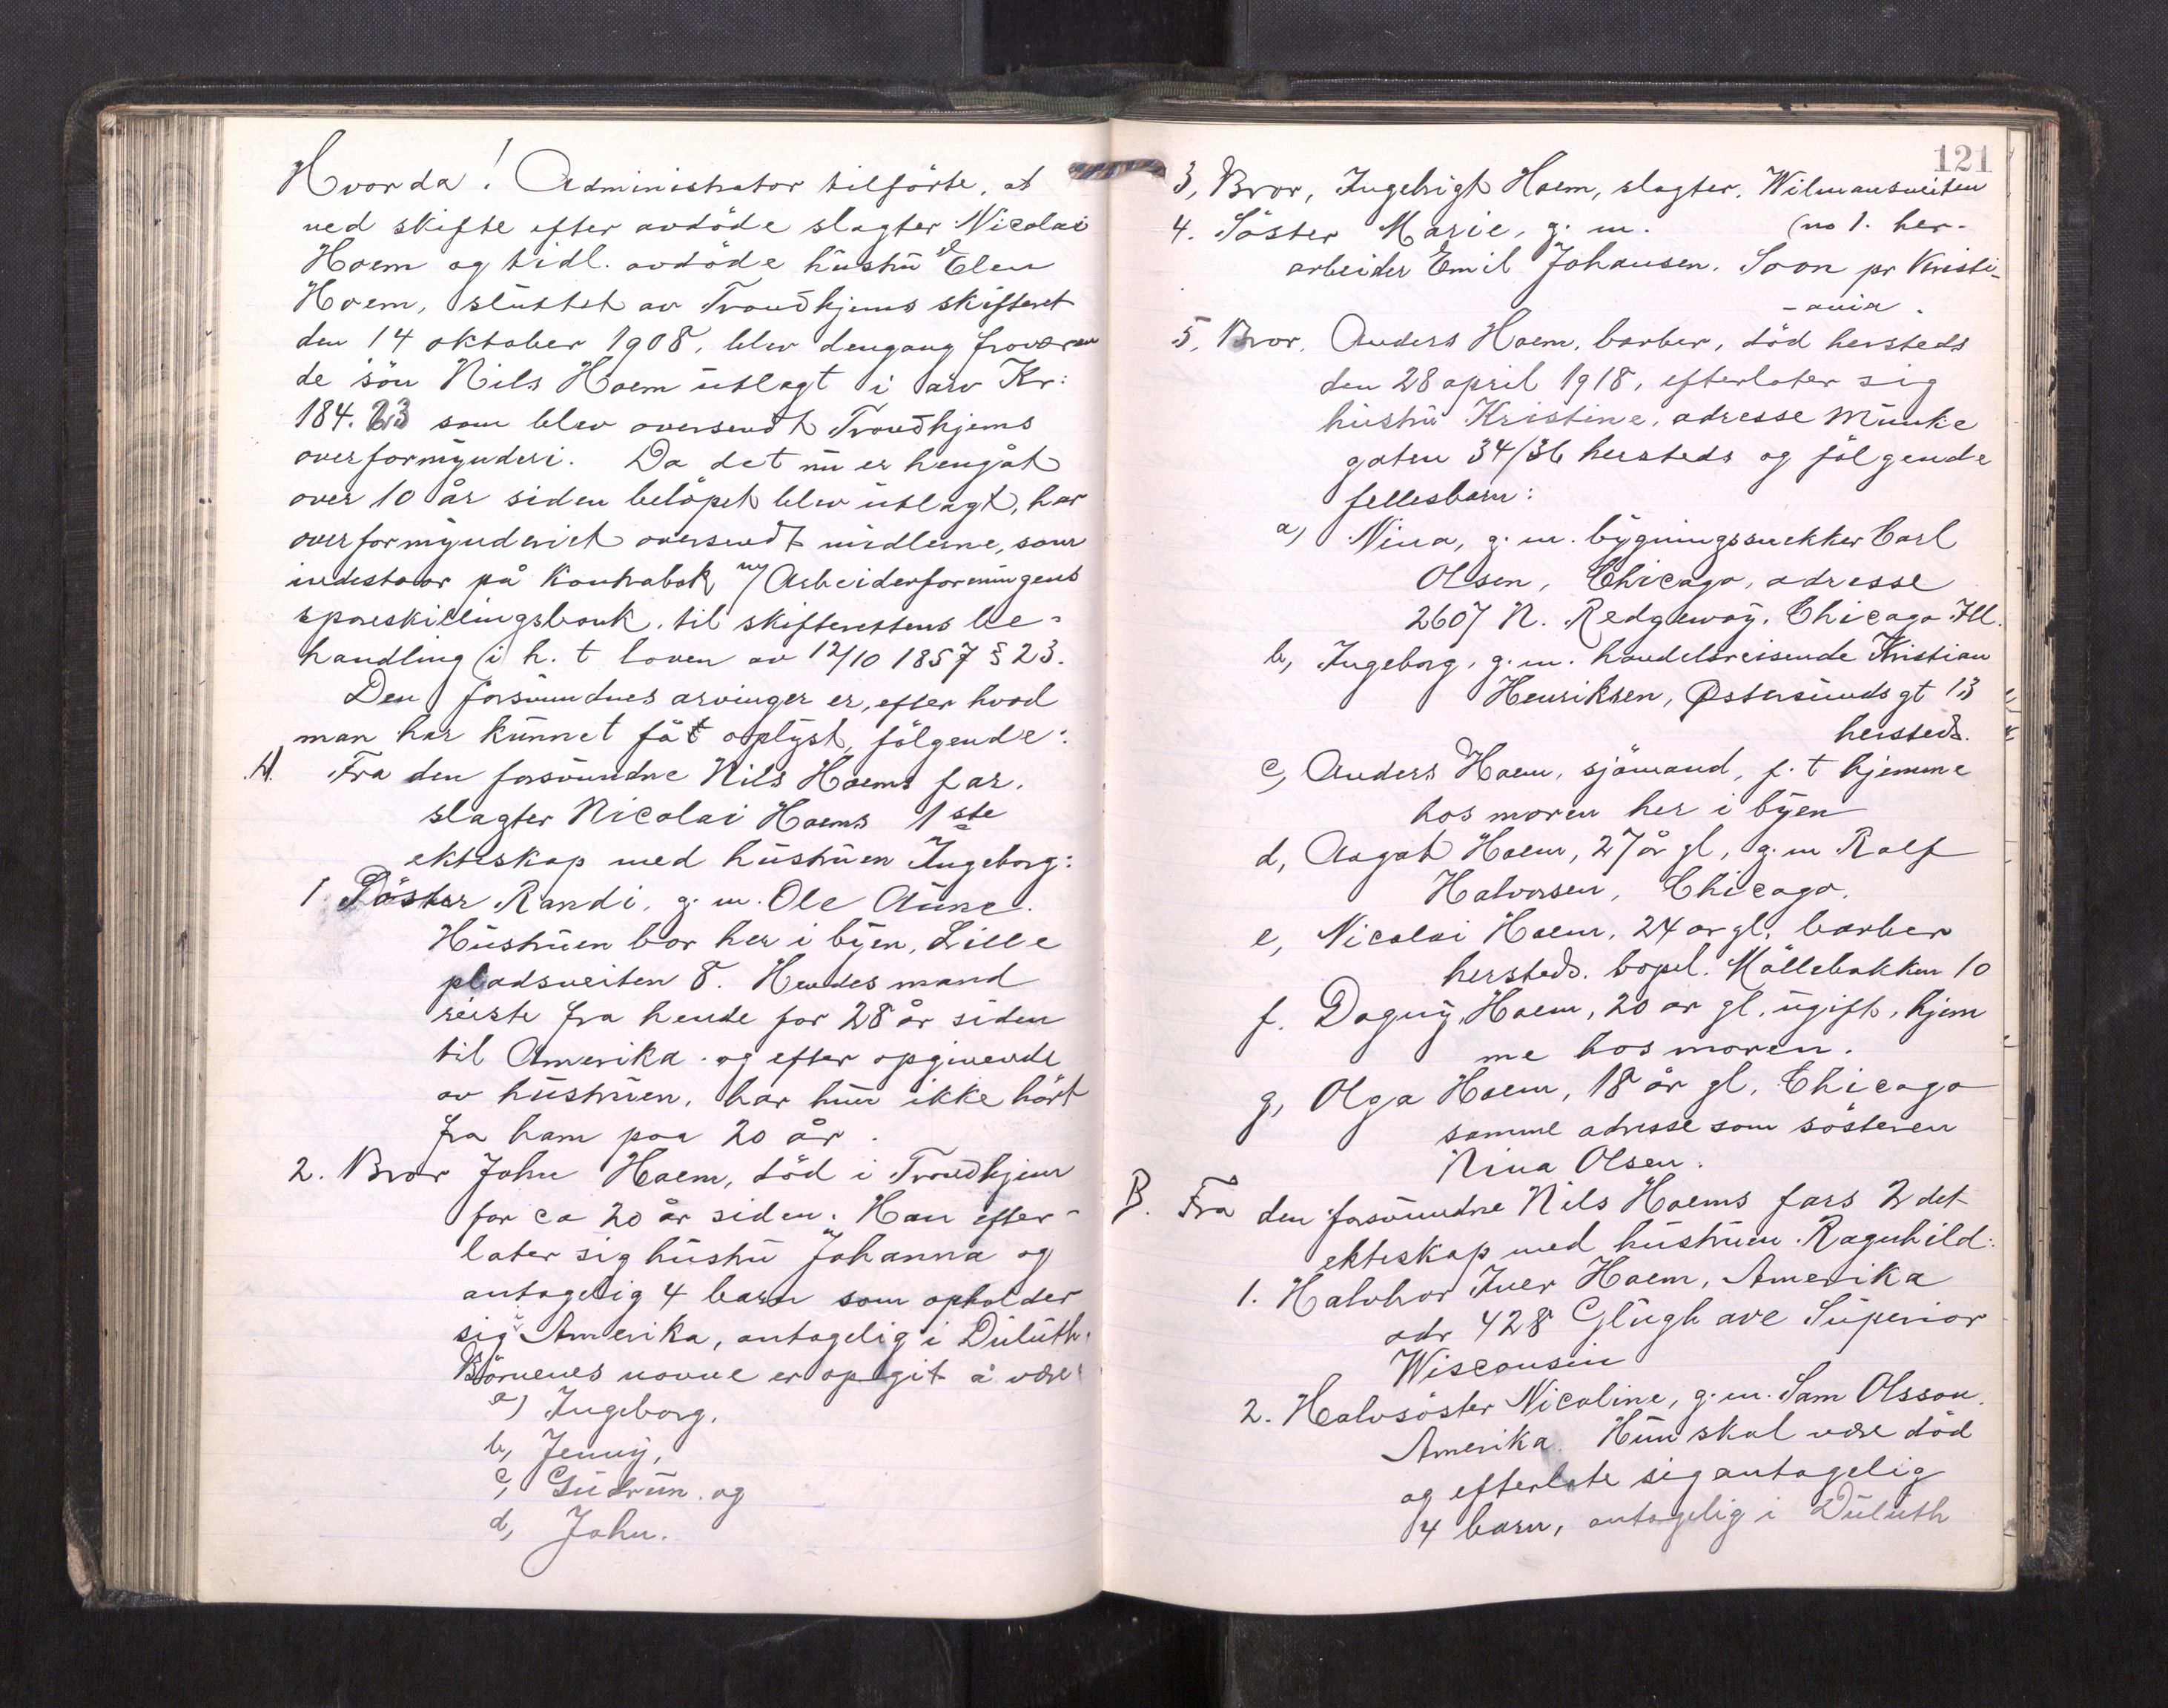 Hvorda! Administrator tilförte, at
ved skifte efter avdöde slagter Nicolai
Hoem og tidl. avdöde hustru Elen
Hoem, sluttet av Trondhjems skifteret
den 14 oktober 1908, blev dengang fraværen
de sön Nils Hoem utlagt i arv Kr:
184.23 som blev oversendt Trondhjems
overformynderi. Da det nu er hengåt
over 10 år siden belöpet blev utlagt, har
overformynderiet oversendt midlerne, som
indestaar på Kontrabok m/ Arbeiderforeningens
spareskillingsbank, til skifterettens be-
handling i h. t loven av 12/10 1857 § 23.
Den forsvundnes arvinger er, efter hvad
man har kunnet fåt oplyst, fölgende:
A. Fra den forsvundne Nils Hoems far,
slagter Nicolai Hoems 1ste
ekteskap med hustruen Ingeborg:
1. Söster Randi, g. m. Ole Aune.
Hustruen bor her i byen, Lille
pladsveiten 8. Hendes mand
reiste fra hende for 28 år siden
til Amerika og efter opgivende
av hustruen, har hun ikke hört
fra ham paa 20 år.
2. Bror John Hoem, död i Trondhjem
for ca 20 år siden. Han efter-
later sig hustru Johanna og
antagelig 4 barn som opholder
sig i Amerika, antagelig i Duluth.
Börnenes navne er opgit å være
a) Ingeborg,
b, Jenny,
c, Gudrun og
d, John.
121
3, Bror, Ingebrigt Hoem, slagter, Wilmansveiten
4. Söster Marie, g. m. (no 1. her.
arbeider Emil Johansen. Soon pr Kristi-
-ania.
5, Bror, Anders Hoem, barber, död hersteds
den 28 april 1918, efterlater sig
hustru Kristine, adresse Munke
gaten 34/36 hersteds og fölgende
fellesbarn:
a) Nina, g. m. bygningssnekker Carl
Olsen, Chicago, adresse
2607 N. Redgeway, Chicago Ill.
b, Ingeborg, g. m. handelsreisende Kristian
Henriksen, Østersunds gt 13
hersteds.
c, Anders Hoem, sjömand, f. t hjemme
hos moren her i byen
d, Aagot Hoem, 27 år gl, g. m Ralf
Halvorsen, Chicago.
e, Nicolai Hoem, 24 ar gl, barber
hersteds. bopel. Möllebakken 10
f. Dagny Hoem, 20 ar gl. ugift, hjem
me hos moren.
g, Olga Hoem, 18 år gl, Chicago
samme adresse som sösteren
Nina Olsen.
B. Fra den forsvundne Nils Hoems fars 2det
ekteskap med hustruen Ragnhild:
1. Halvbror Iver Hoem, Amerika
adr 428 Glugh ave Superior
Wisconsin
2. Halvsöster Nicoline, g. m. Sam Olsson,
Amerika. Hun skal være död
og efterlate sig antagelig
4 barn, antagelig i Duluth